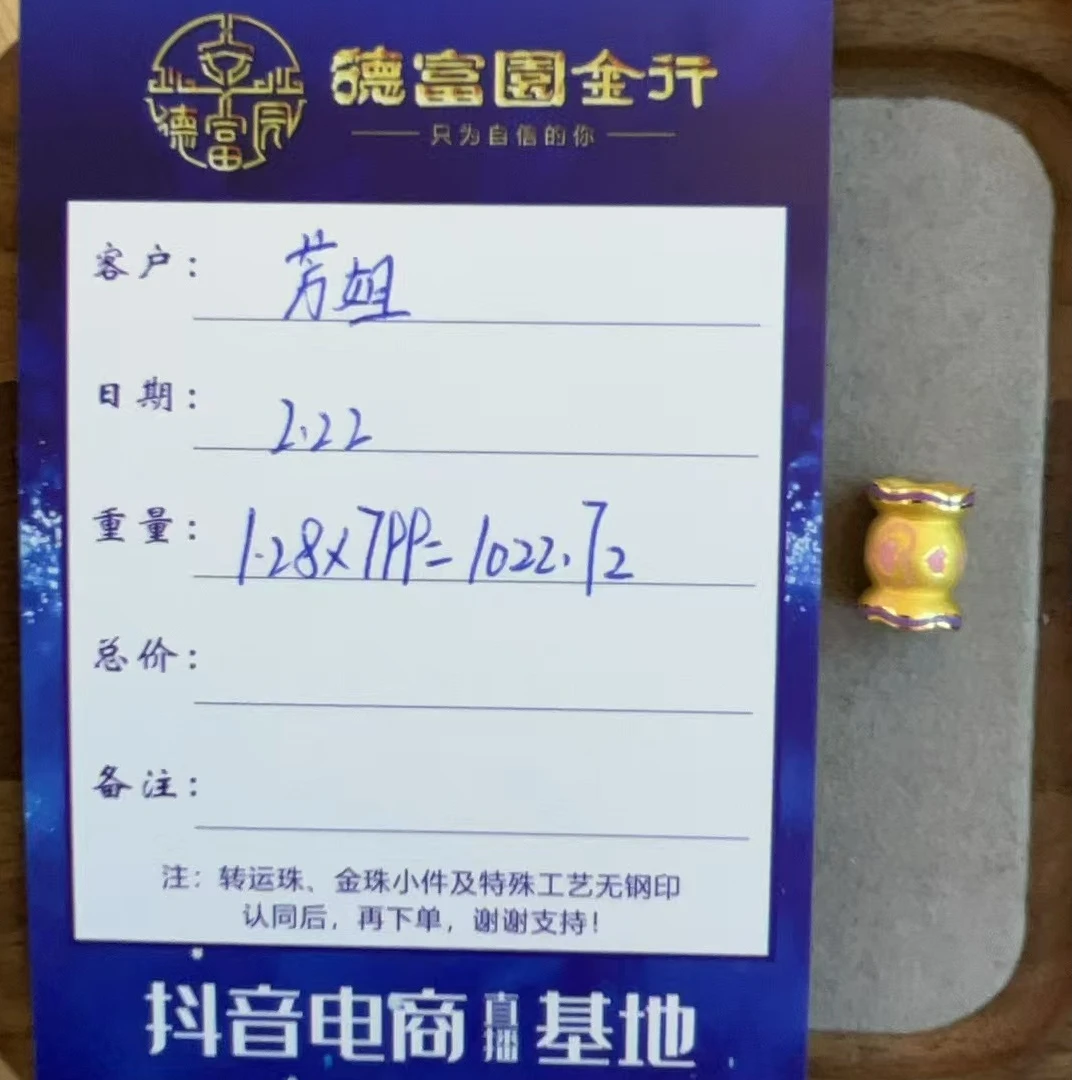 德富园
德富園金行
只为自信的你
客户： 芳姐
日期： 2.22
重量： 1.28×799=1022.72
总价：
备注：
注：转运珠、金珠小件及特殊工艺无钢印
认同后，再下单，谢谢支持！
抖音电商直播基地